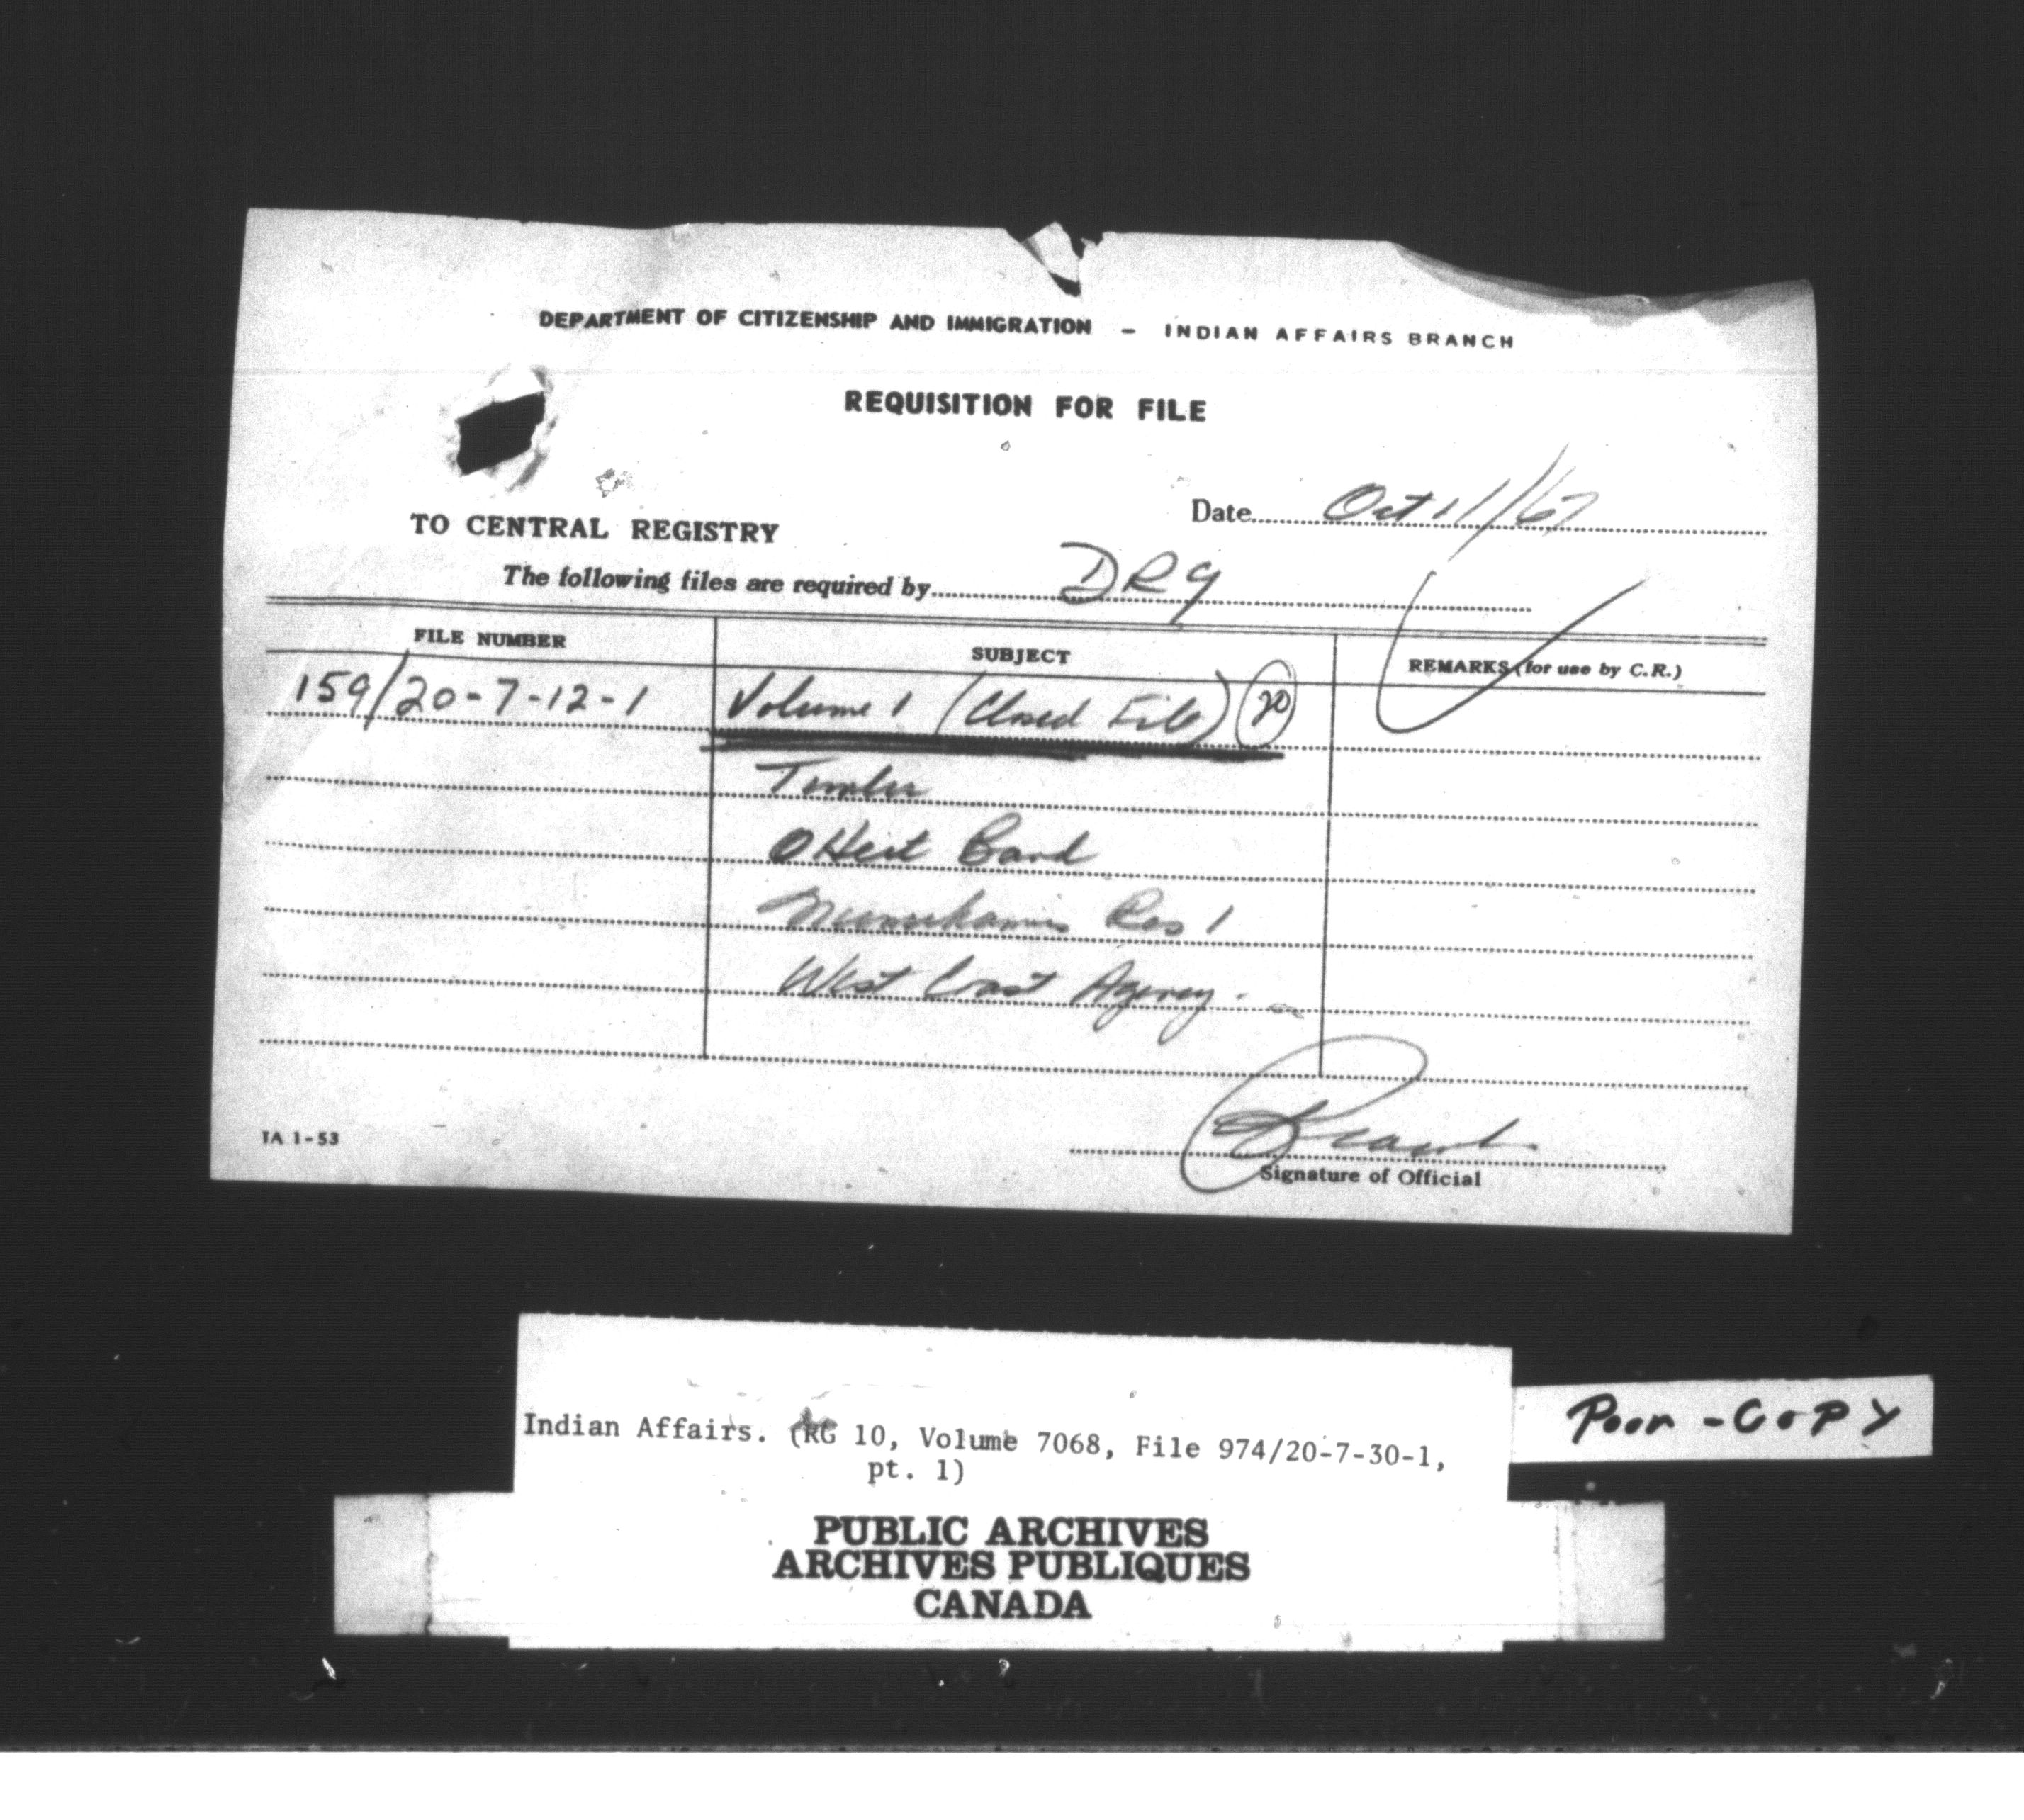 DEPARTMENT OF CITIZENSHIP AND IMMIGRATION – INDIAN AFFAIRS BRANCH
REQUISITION FOR FILE
Date Oct 11/67
TO CENTRAL REGISTRY
The following files are required by DR9
FILE NUMBER SUBJECT REMARKS (for use by C.R.)
159/20-7-12-1 Volume 1 (Closed File) 20
Timber
OHeit Band
Numukamis Res 1
West Coast Agency.
IA 1-53
Signature of Official
Indian Affairs. (RG 10, Volume 7068, File 974/20-7-30-1,
pt. 1)
Poor - COPY
PUBLIC ARCHIVES
ARCHIVES PUBLIQUES
CANADA